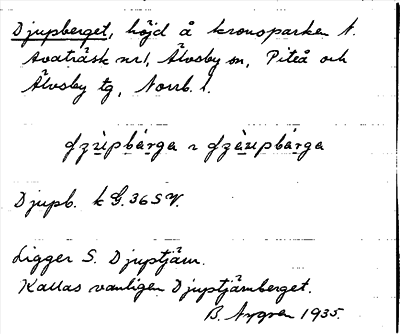 Djupberget, höjd å kronoparken N.
Avaträsk nr 1, Älvsby sn, Piteå och
Älvsby tg, Norrb. l.
Djupb. k G.36 S V.
Ligger S. Djuptjärn.
Kallas vanligen Djuptjärnberget.
B. Nygren 1935.